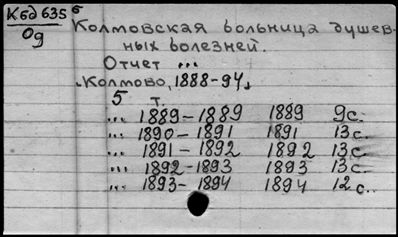 К6д 635 б
Од
Колмовская больница душев-
ных болезней.
Отчет ...
„Колмово, 1888-94„
5 т.
... 1889-1889 1889 9с.
... 1890-1891 1891 13с.
... 1891-1892 1892 13с.
... 1892-1893 1893 13с.
... 1893-1894 1894 12с.